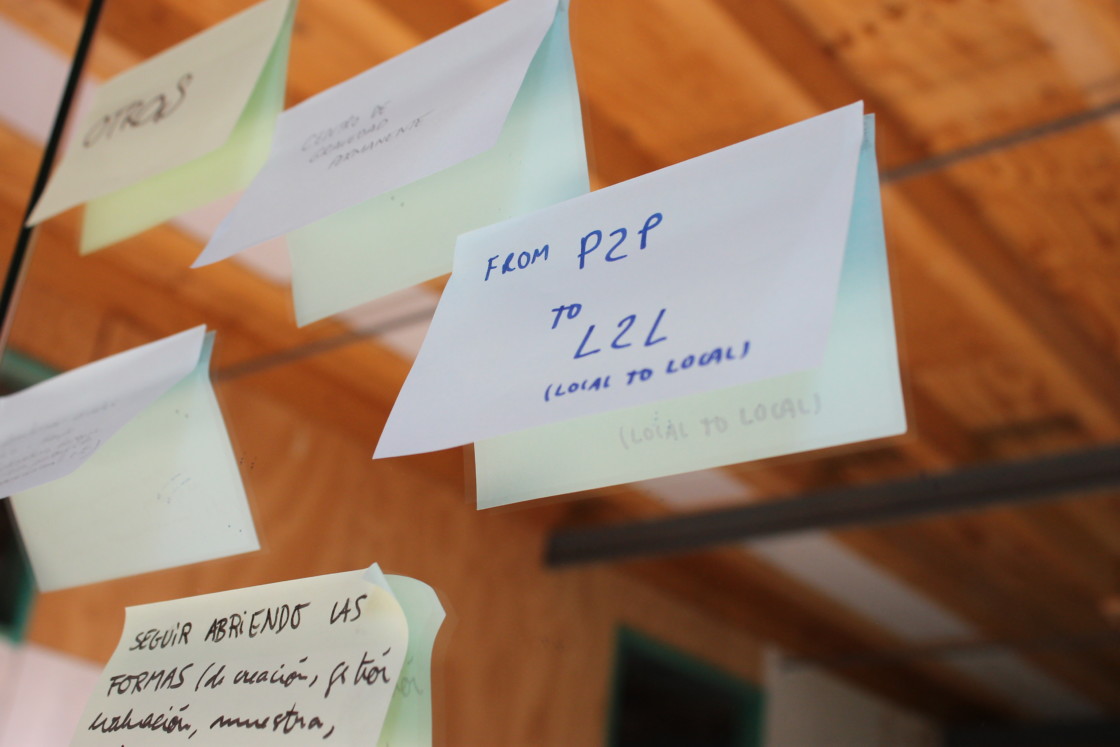 OTROS
CENTRO DE
GRAVEDAD
PERMANENTE
FROM P2P
TO
L2L
(LOCAL TO LOCAL)
(LOCAL TO LOCAL)
SEGUIR ABRIENDO LAS
FORMAS (de creación, gestión
evaluación, muestra,